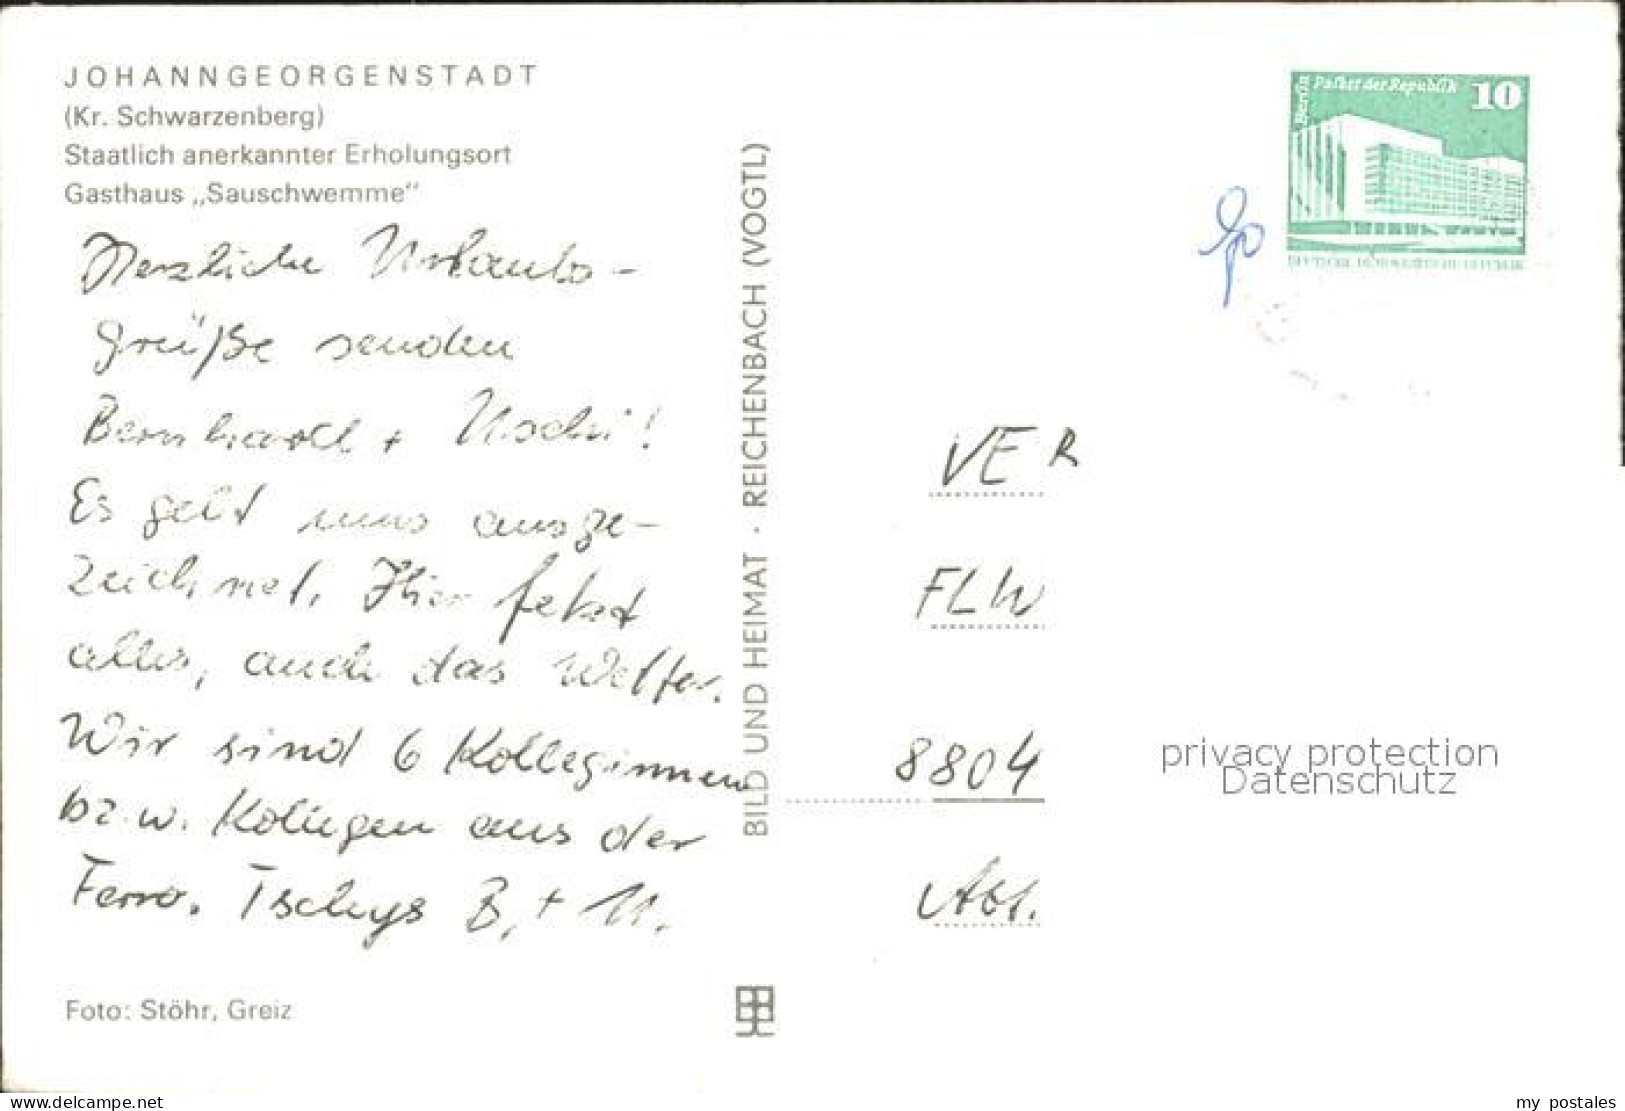 JOHANNGEORGENSTADT
(Kr. Schwarzenberg)
Staatlich anerkannter Erholungsort
Gasthaus „Sauschwemme"
Herzliche Urlaubs-
grüße senden
Bernhardt + Uschi!
Es geht uns ausge-
zeichnet. Hier fetzt
alles, auch das Wetter.
Wir sind 6 Kolleginnen
bzw. Kollegen aus der
Ferro. Tschys B. + U.
Foto: Stöhr, Greiz
BILD UND HEIMAT · REICHENBACH (VOGTL)
Berlin
Palast der Republik
10
DEUTSCHE DEMOKRATISCHE REPUBLIK
VER
FLW
8804
Abt.
privacy protection
Datenschutz
www.delcampe.net
my_postales